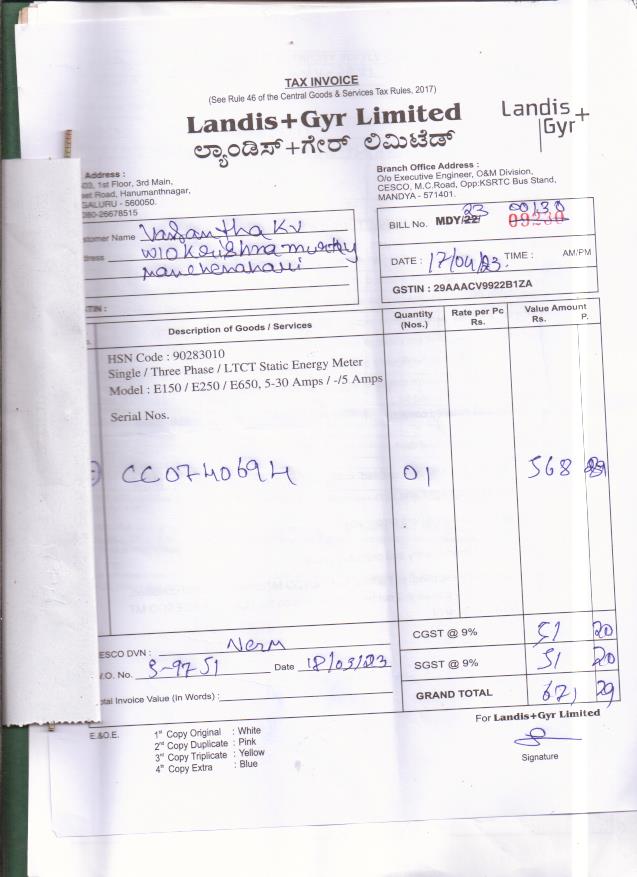 TAX INVOICE
(See Rule 46 of the Central Goods & Services Tax Rules, 2017)
Landis+Gyr Limited
ಲ್ಯಾಂಡಿಸ್+ಗೇರ್ ಲಿಮಿಟೆಡ್
Landis+
Gyr
Address :
1st Floor, 3rd Main,
Road, Hanumanthnagar,
GALURU - 560050.
080-26678515
Branch Office Address :
O/o Executive Engineer, O&M Division,
CESCO, M.C.Road, Opp:KSRTC Bus Stand,
MANDYA - 571401.
Customer Name Vasantha KV
W/O Krishna murthy
BILL No. MDY/22 23 09230 00130
DATE : 17/04/23. TIME : AM/PM
GSTIN : 29AAACV9922B1ZA
TIN :
Description of Goods / Services Quantity (Nos.) Rate per Pc Rs. Value Amount Rs. P.
HSN Code : 90283010
Single / Three Phase / LTCT Static Energy Meter
Model : E150 / E250 / E650, 5-30 Amps / -/5 Amps
Serial Nos.
CC0740694 01 568 89
CGST @ 9% 51 20
SGST @ 9% 51 20
GRAND TOTAL 671 29
ESCO DVN :
V.O. No. S-9751 Date 18/03/23
tal Invoice Value (In Words) :
For Landis+Gyr Limited
Signature
E.&O.E. 1st Copy Original : White
2nd Copy Duplicate : Pink
3rd Copy Triplicate : Yellow
4th Copy Extra : Blue